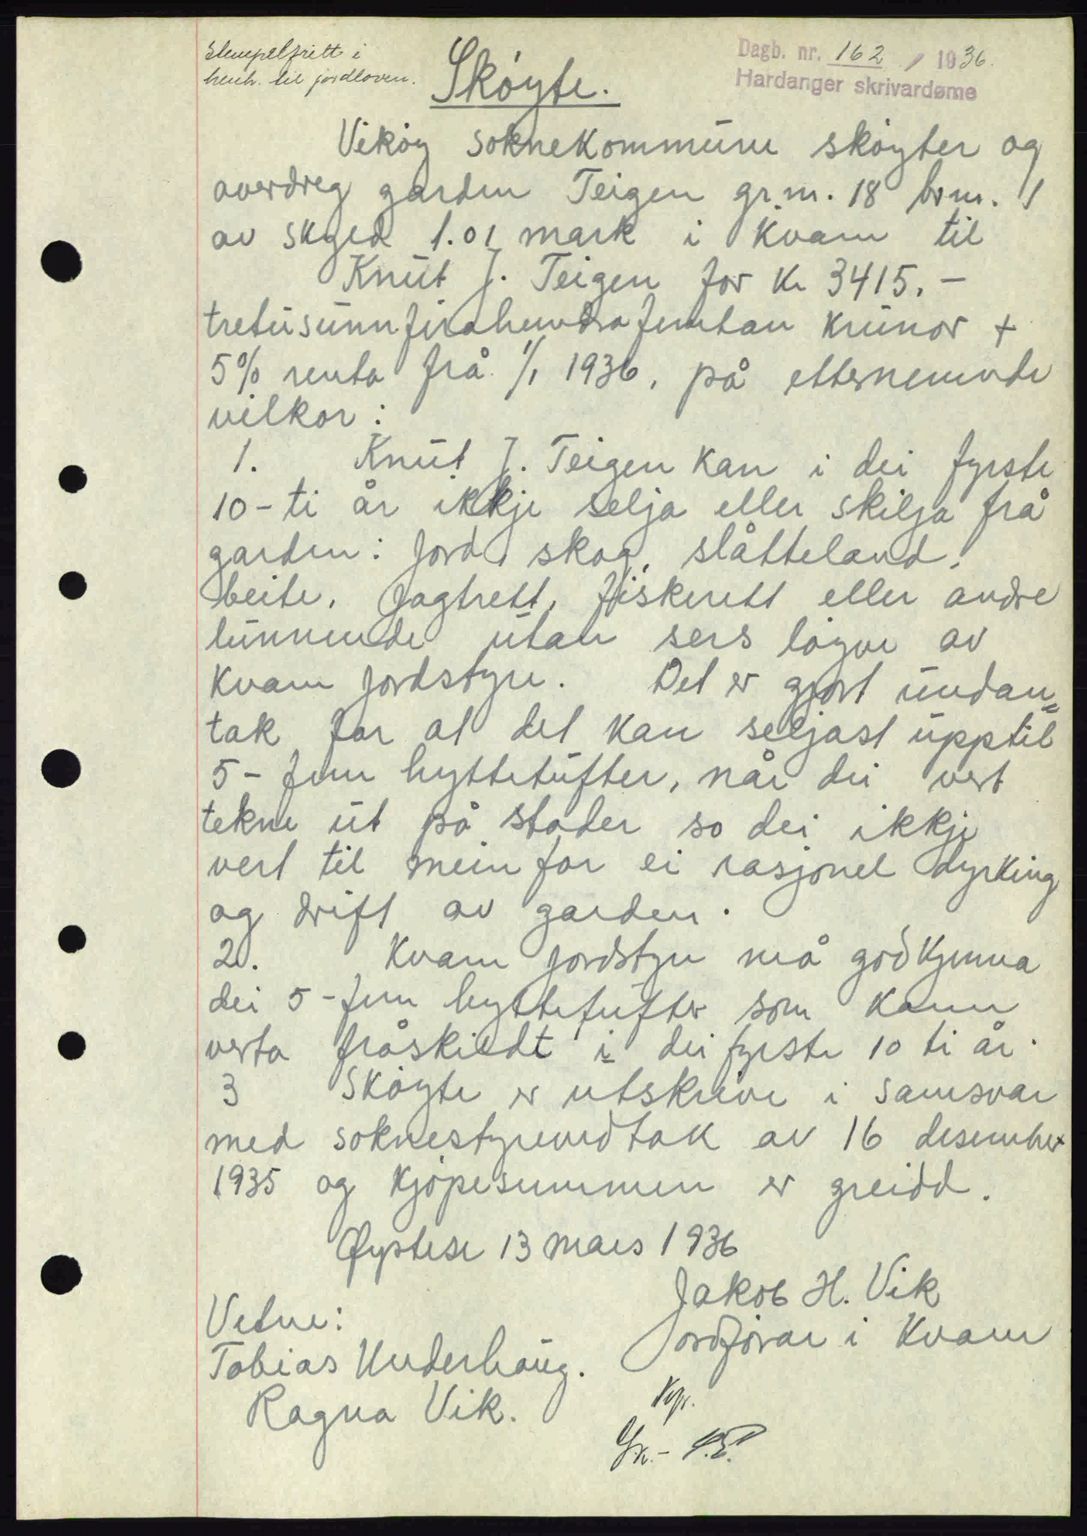 Stempelfritt i
henh. til jordloven.
Dagb. nr. 162 / 1936.
Hardanger skrivardøme
Skøyte.
Vikøy soknekommune skøyter og
overdreg garden Teigen gr.nr. 18 br.nr. 1
av skyld 1.01 mark i Kvam til
Knut J. Teigen for kr 3415.-
tretusunnfirahundrafemtan krunor +
5% renta frå 1/1 1936, på etternemnde
vilkor:
1. Knut J. Teigen kan i dei fyrste
10-ti år ikkje selja eller skilja frå
garden: Jord, skog, slåtteland,
beite, jagtrett, fiskerett eller andre
lunnende utan sers løyve av
Kvam jordstyre. Det er gjort undan=
tak for at det kan seljast upptil
5-fem hyttetufter, når dei vert
tekne ut på stader so dei ikkje
vert til mein for ei rasjonel dyrking
og drift av garden.
2. Kvam jordstyre må godkjenna
dei 5-fem hyttetufter som kann
verta fråskildt i dei fyrste 10 ti år.
3 Skøyte er utskrive i samsvar
med soknestyrevedtak av 16 desember
1935 og kjøpesummen er greidd.
Øystese 13 mars 1936
Jakob H. Vik
Ordførar i Kvam
Vitne:
Tobias Underhaug.
Ragna Vik.
Kpr.